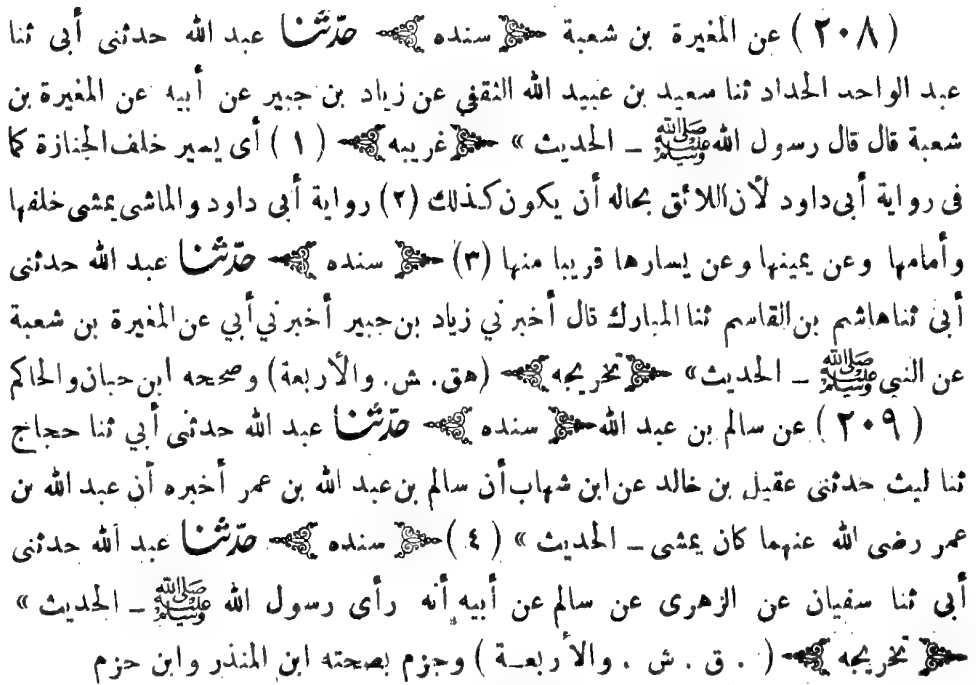 ( ٢٠٨ ) عن المغيرة بن شعبة ﴿ سنده ﴾ حدّثنا عبد الله حدثنى أبى ثنا
عبد الواحد الحداد ثنا سعيد بن عبيد الله الثقفي عن زياد بن جبير عن أبيه عن المغيرة بن
شعبة قال قال رسول الله ﷺ ــ الحديث » ﴿ غريبه ﴾ ( ١ ) أى يسير خلف الجنازة كما
فى رواية أبى داود لأن اللائق بحاله أن يكون كذلك (٢) رواية أبى داود والماشى يمشى خلفها
وأمامها وعن يمينها وعن يسارها قريبا منها (٣) ﴿ سنده ﴾ حدّثنا عبد الله حدثنى
أبى ثنا هاشم بن القاسم ثنا المبارك قال أخبرني زياد بن جبير أخبرني أبي عن المغيرة بن شعبة
عن النبى ﷺ ــ الحديث» ﴿ تخريجه ﴾ (هق. ش. والأربعة) وصححه ابن حبان والحاكم
( ٢٠٩ ) عن سالم بن عبد الله ﴿ سنده ﴾ حدّثنا عبد الله حدثنى أبي ثنا حجاج
ثنا ليث حدثنى عقيل بن خالد عن ابن شهاب أن سالم بن عبد الله بن عمر أخبره أن عبد الله بن
عمر رضى الله عنهما كان يمشى ــ الحديث » ( ٤ ) ﴿ سنده ﴾ حدّثنا عبد الله حدثنى
أبى ثنا سفيان عن الزهرى عن سالم عن أبيه أنه رأى رسول الله ﷺ ــ الحديث »
﴿ تخريجه ﴾ ( . ق . ش . والأربعـة ) وجزم بصحته ابن المنذر وابن حزم